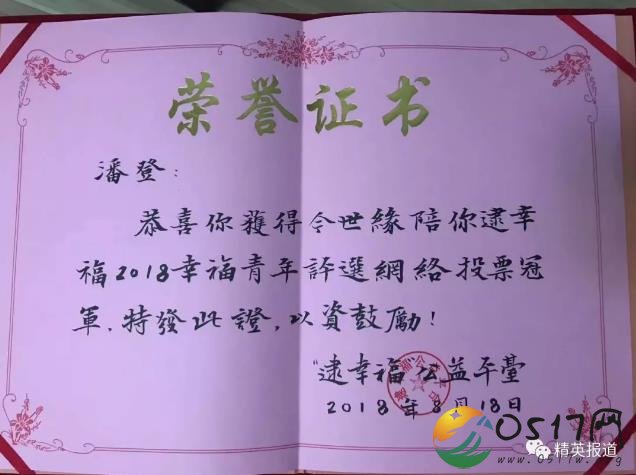 荣誉证书
潘登：
恭喜你獲得令世緣陪你逮幸
福2018幸福青年評選網絡投票冠
軍，特發此證，以資鼓勵！
"逮幸福"公益平臺
2018年8月18日
0517网
精英报道
www.0517w.org